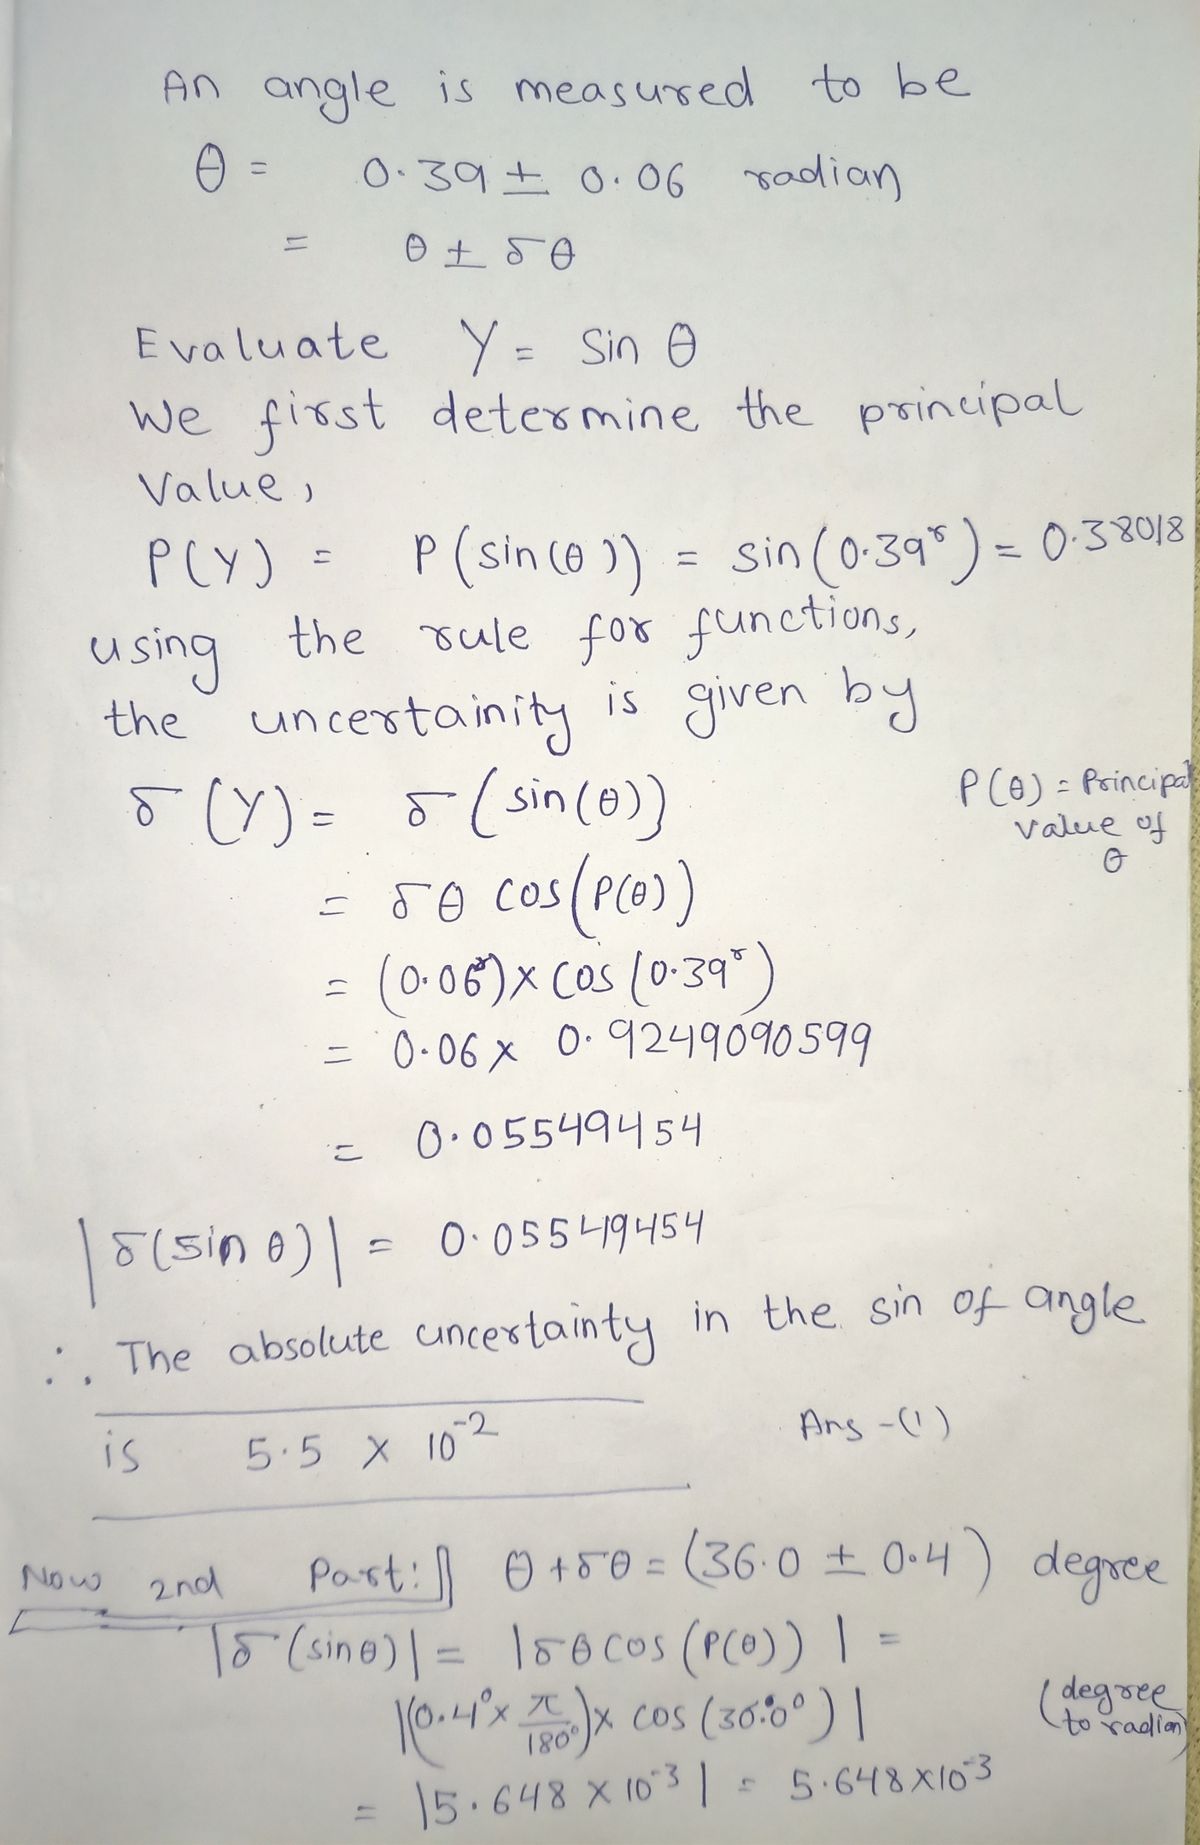 An angle is measured to be
θ = 0.39 ± 0.06 radian
= θ ± δθ
Evaluate Y = Sin θ
We first determine the principal
Value,
P(Y) = P(sin(θ)) = sin(0.39ʳ) = 0.38018
using the rule for functions,
the uncertainity is given by
δ(Y) = δ(sin(θ))
P(θ) = Principal
value of
θ
= δθ cos(P(θ))
= (0.06ʳ) × cos(0.39ʳ)
= 0.06 × 0.9249090599
= 0.05549454
|δ(sin θ)| = 0.05549454
∴ The absolute uncertainty in the sin of angle
is 5.5 × 10⁻² Ans -(1)
Now 2nd Part: θ + δθ = (36.0 ± 0.4) degree
|δ(sinθ)| = |δθ cos(P(θ))| =
|(0.4° × π/180°) × cos(36.0°)| (degree
to radian)
= |5.648 × 10⁻³| = 5.648 × 10⁻³